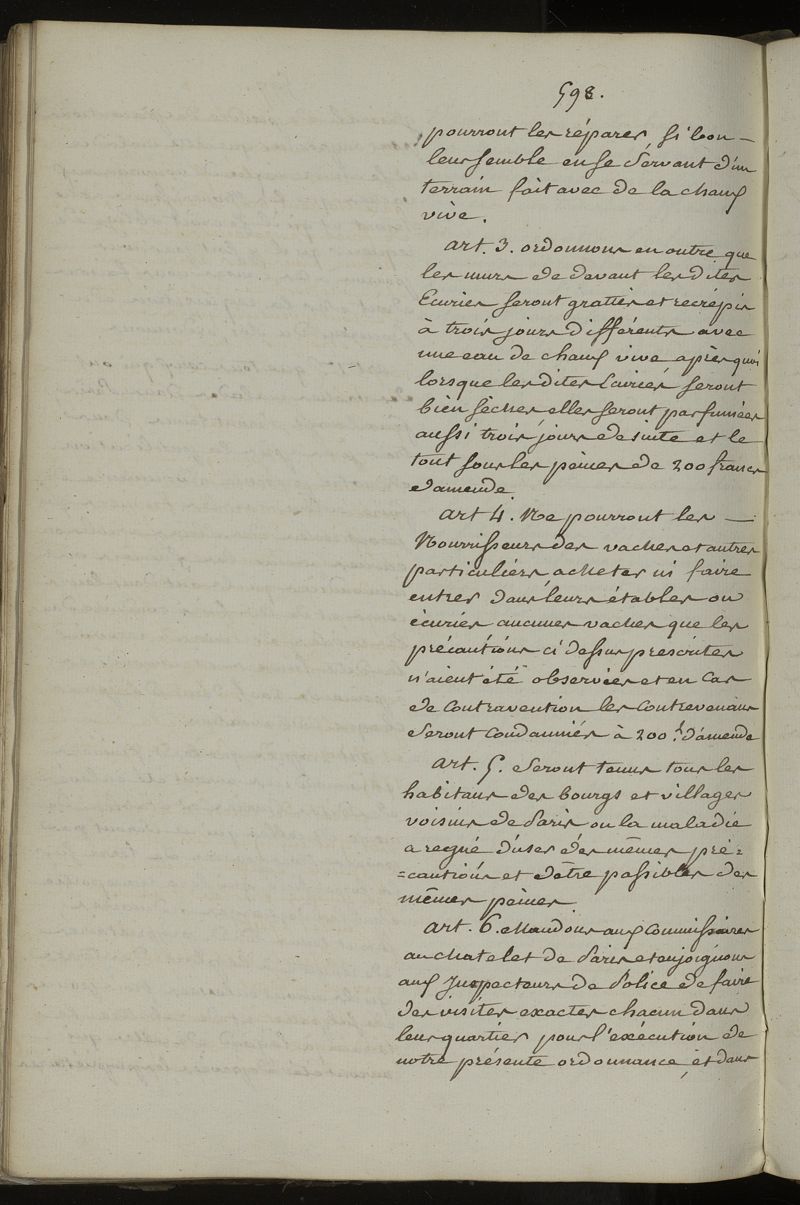 598.
pourront les réparer, si bon —
leur semble en se servant d'un
terrain fait avec de la chaux
vive.
art. 3. ordonnons en outre que
les murs de devant les dites
Ecuries seront grattés et recrépis
à trois jours différents avec
une eau de chaux vive après quoi
lorsque les dites Ecuries seront
bien sèches elles seront parfumées
aussi trois jours de suite et le
tout sous les peines de 200 francs
d'amende.
art 4. Ne pourront les —
Nourrisseurs des vaches et autres
particuliers, acheter ni faire
entrer dans leurs étables ou
écuries aucunes vaches que les
précautions ci dessus prescrites
n'aient été observées et en cas
de contravention les contrevenans
seront condamnés à 200 f. d'amende
art. 5. Seront tenus tous les
habitans des bourgs et villages
voisins de Paris ou la maladie
a regné d'user des mêmes pré=
=cautions et d'être passibles des
mêmes peines.
art. 6. Mandons aux Commissaires
au chatelet de Paris et enjoignons
aux Inspecteurs de Police de faire
des visites exactes chacun dans
leur quartier pour l'exécution de
notre présente ordonnance, et dans